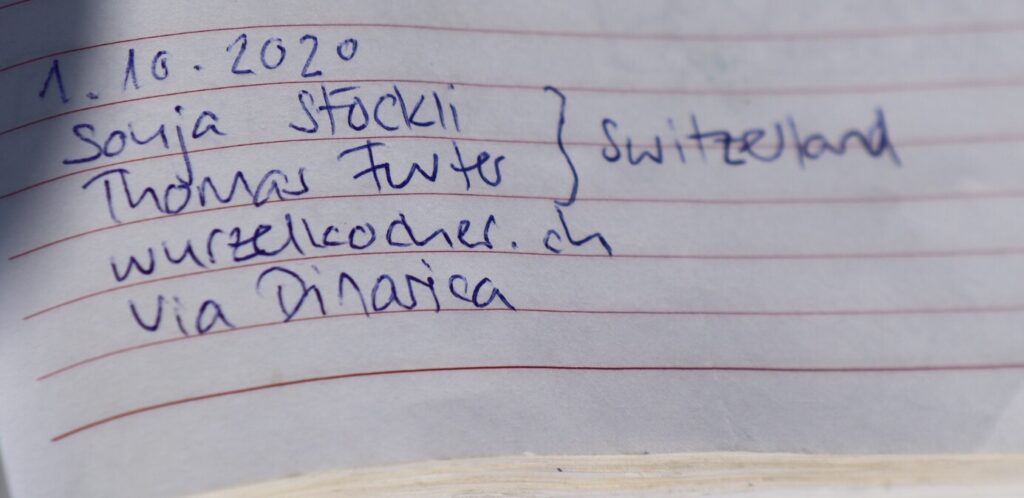 1.10.2020
Sonja Stöckli } Switzerland
Thomas Furter
wurzelkocher.ch
Via Dinarica